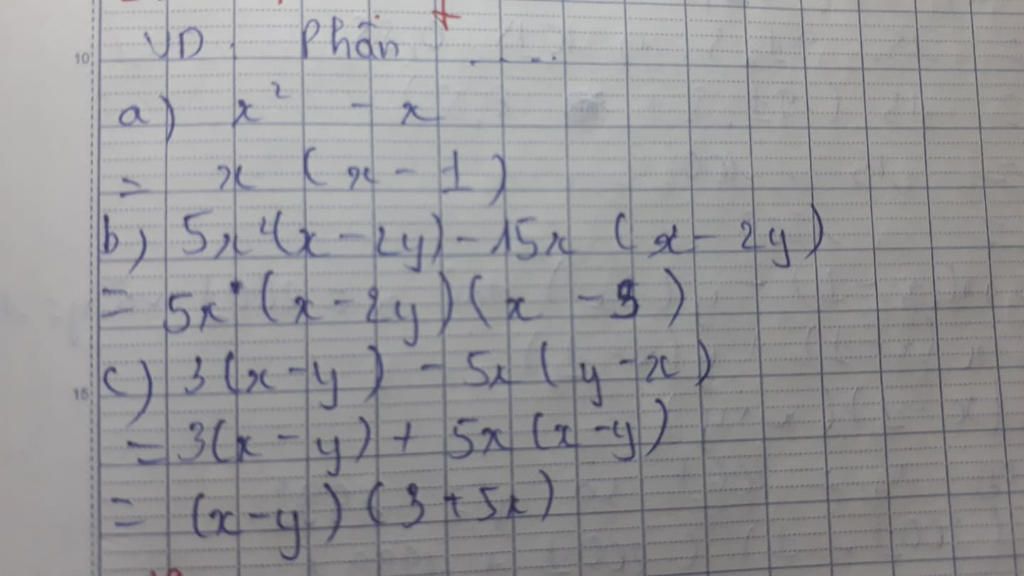 10
VD: Phần .....
a) x² - x
= x (x - 1)
b) 5x²(x - 2y) - 15x (x - 2y)
= 5x (x - 2y)(x - 3)
c) 3(x - y) - 5x (y - x)
15
= 3(x - y) + 5x (x - y)
= (x - y) (3 + 5x)